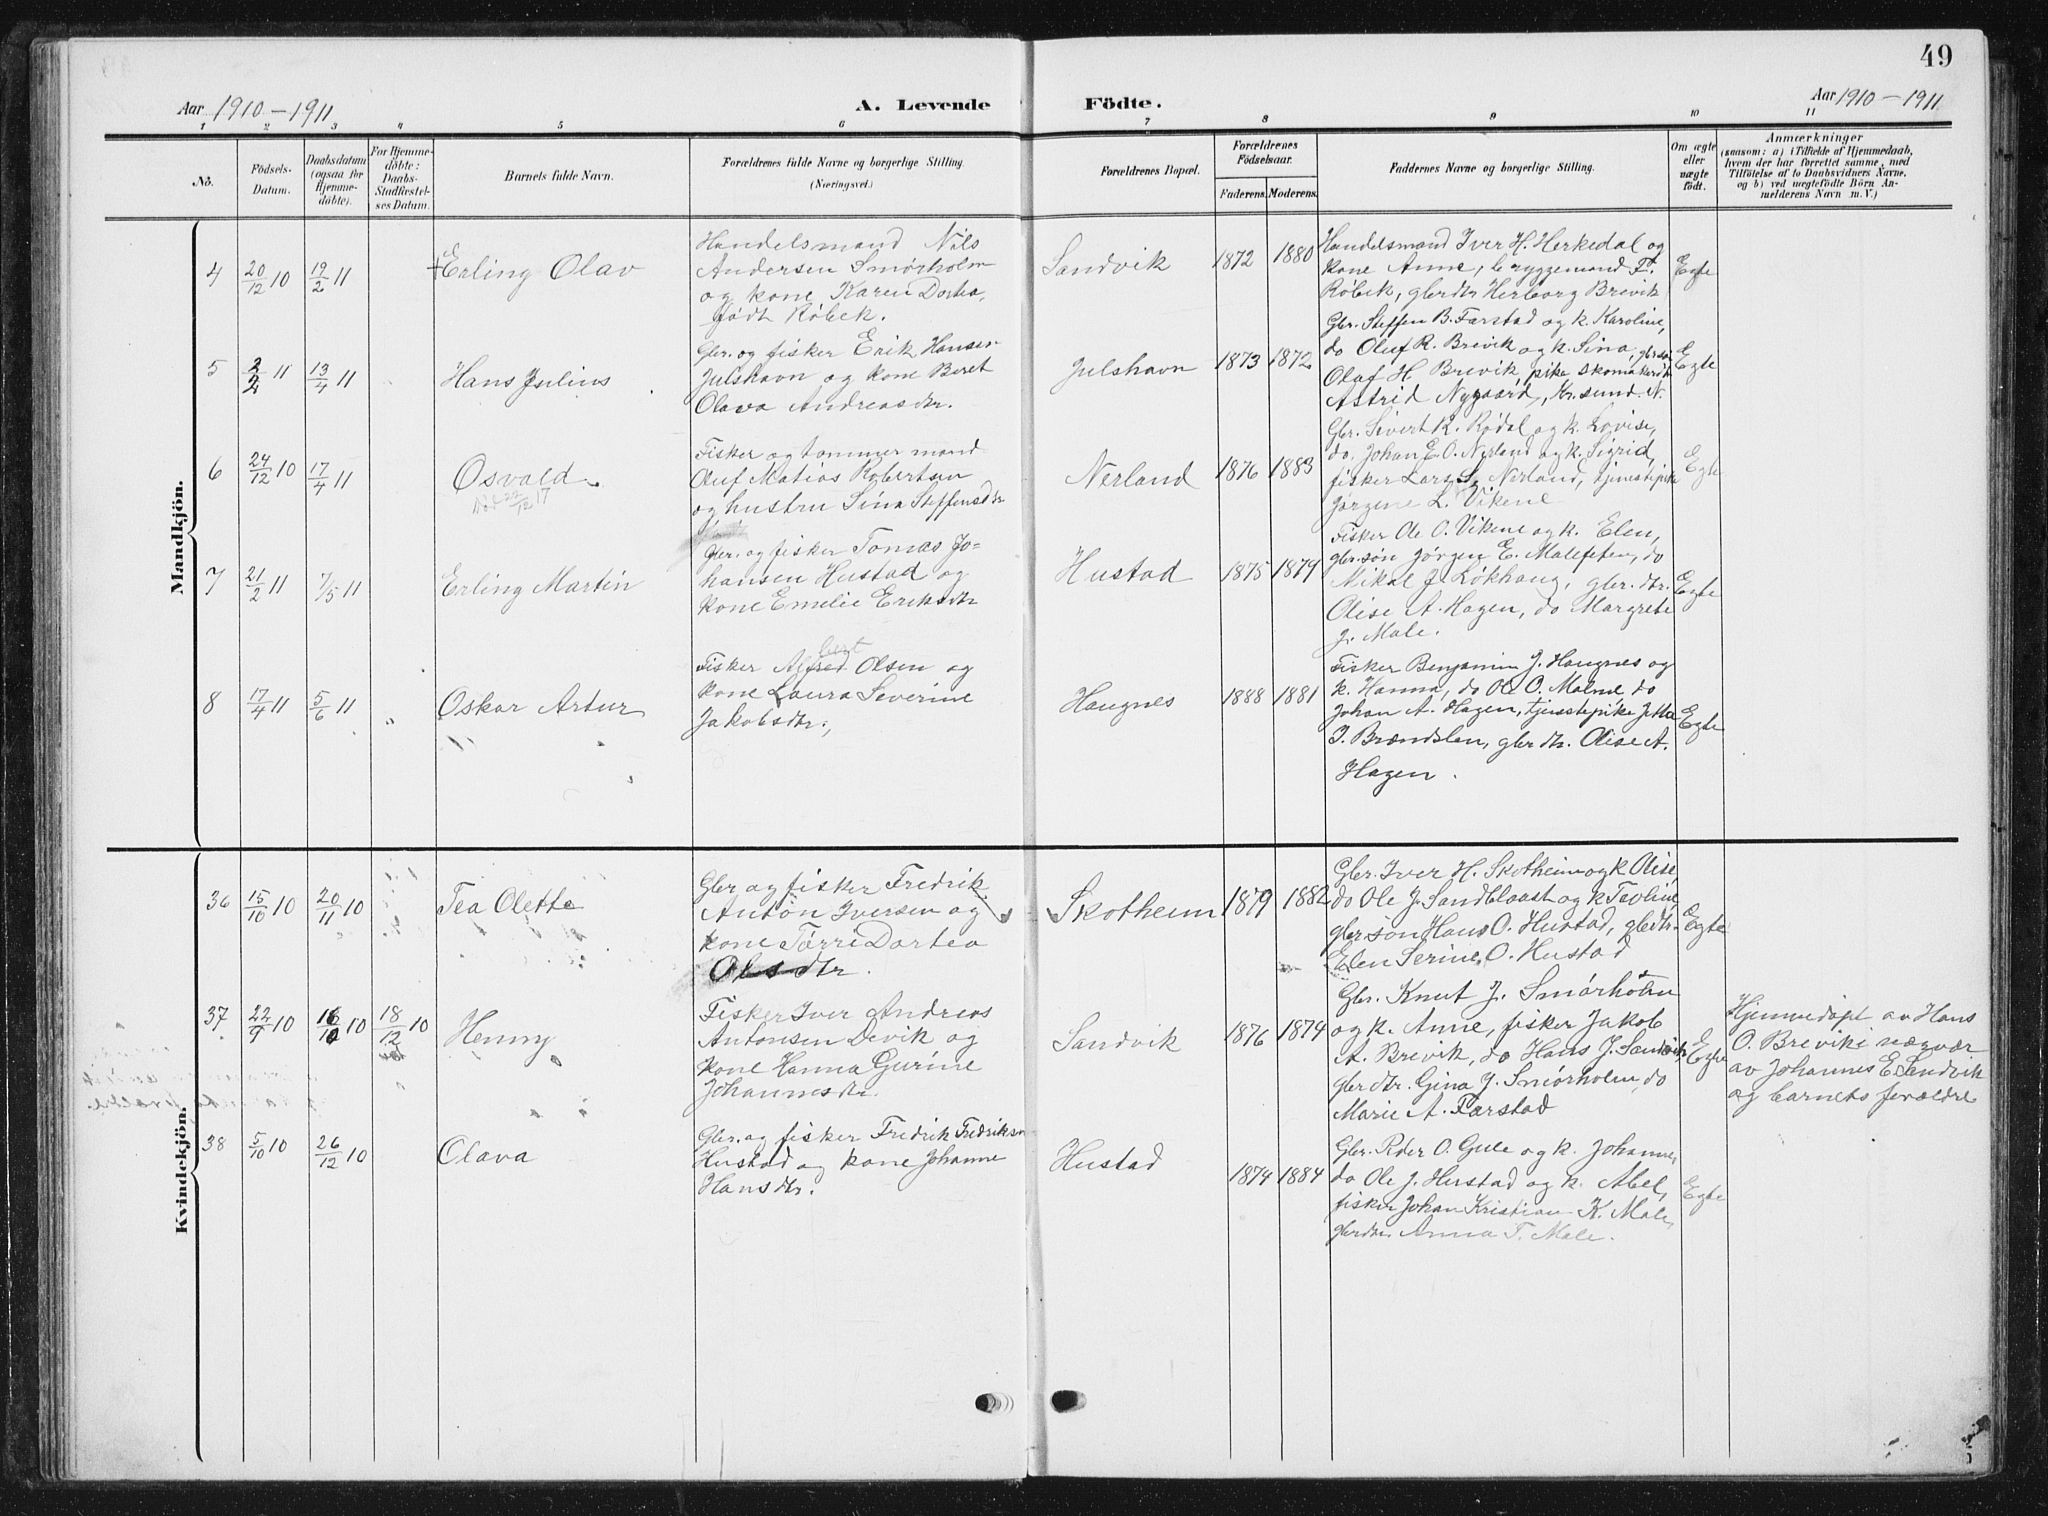 49
Aar 1910-1911
A. Levende Födte.
Aar 1910-1911
1 2 3 4 5 6 7 8 9 10 11
No.
Födsels-
Datum.
Daabsdatum
(ogsaa for
Hjemme-
döbte).
For Hjemme-
döbte:
Daabs-
Stadfæstel-
ses Datum.
Barnets fulde Navn.
Forældrenes fulde Navne og borgerlige Stilling.
(Næringsvei.)
Forældrenes Bopæl.
Forældrenes
Födselsaar.
Faderens.
Moderens.
Faddernes Navne og borgerlige Stilling.
Om ægte
eller
uægte
födt.
Anmærkninger
(saasom: a) i Tilfælde af Hjemmedaab,
hvem der har forrettet samme, med
Tilföielse af to Daabsvidners Navne,
og b) ved uægtefödte Börn An-
melderens Navn m. V.)
Mandkjön.
4
20/12 10
19/2 11
+Erling Olav
Handelsmand Nils
Andersen Smørholm
og kone Karen Dortea,
født Røbek.
Sandvik
1872
1880
Handelsmand Iver H. Herkedal og
kone Anne, bryggemand E.
Røbek, gbrdtr Herborg Brevik
Egte
5
2/2 11
13/4 11
Hans Julius
Gbr. og fisker Erik Hansen
Julshavn og kone Beret
Olava Andreasdtr.
Julshavn
1873
1872
Gbr. Steffen B. Farstad og k. Karoline,
do Oluf R. Brevik og k. Sina, gbrsøn
Olaf H Brevik, pike skomakerdtr
Astrid Nygaard, Kr.sund. N.
Egte
6
24/12 10
17/4 11
Osvald
Død 22/12 17
Fisker og tømmermand
Oluf Matias Robertsen
og hustru Sina Steffensdtr
Nerland
1876
1883
Gbr. Sivert K. Rødal og k. Lovise,
do. Johan E. O. Nerland og k. Sigrid,
fisker Lars S. Nerland, tjenestepike
Jørgine L. Vikene
Egte
7
21/2 11
7/5 11
Erling Martin
Gbr. og fisker Tomas Jo-
hansen Hustad og
kone Emelie Eriksdtr
Hustad
1875
1879
Fisker Ole O. Vikene og k. Elen,
gbr.søn Jørgen E. Malefeten, do
Mikal J. Løkhaug, gbr. dtr.
Olise A. Hagen, do Margrete
J. Male.
Egte
8
17/4 11
5/6 11
Oskar Artur
Fisker Alfred Olsen og
bert
kone Laura Severine
Jakobsdtr.,
Haugnes
1888
1881
Fisker Benjamin J. Haugnes og
k. Hanna, do Ole O. Malme, do
Johan A. Hagen, tjenstepike Jetta
J. Brændslen, gbr dtr. Olise A.
Hagen.
Egte
Kvindekjön.
36
15/10 10
20/11 10
Tea Olette
Gbr og fisker Fredrik
Anton Iversen og
kone Tørre Dortea
Olsdtr.
Skotheim
1879
1882
Gbr. Iver H. Skotheim og k Olise
do Ole J. Sandblaast og k Tavline
gbrsøn Hans O. Hustad, gbrdtr.
Elen Serine O. Hustad
Egte
37
22/9 10
16/10 10
18/12 10
Henny
Fisker Iver Andreas
Antonsen Devik og
kone Hanna Gurine
Johannesdtr.
Sandvik
1876
1874
Gbr. Knut J. Smørholm
og k. Anne, fisker Jakob
A. Brevik, do Hans J. Sandvik
gbrdtr. Gina J. Smørholm, do
Marie A. Farstad
Egte
Hjemmedøpt av Hans
O. Brevik i nærvær
av Johannes E. Sandvik
og barnets forældre
38
5/10 10
26/12 10
Olava
Gbr. og fisker Fredrik Fredriksen
Hustad og kone Johanne
Hansdtr.
Hustad
1874
1884
Gbr. Peder O. Gule og k. Johanne,
do Ole J. Hustad og k. Abel,
fisker Johan Kristian K. Male,
gbrdtr. Anna T. Male.
Egte